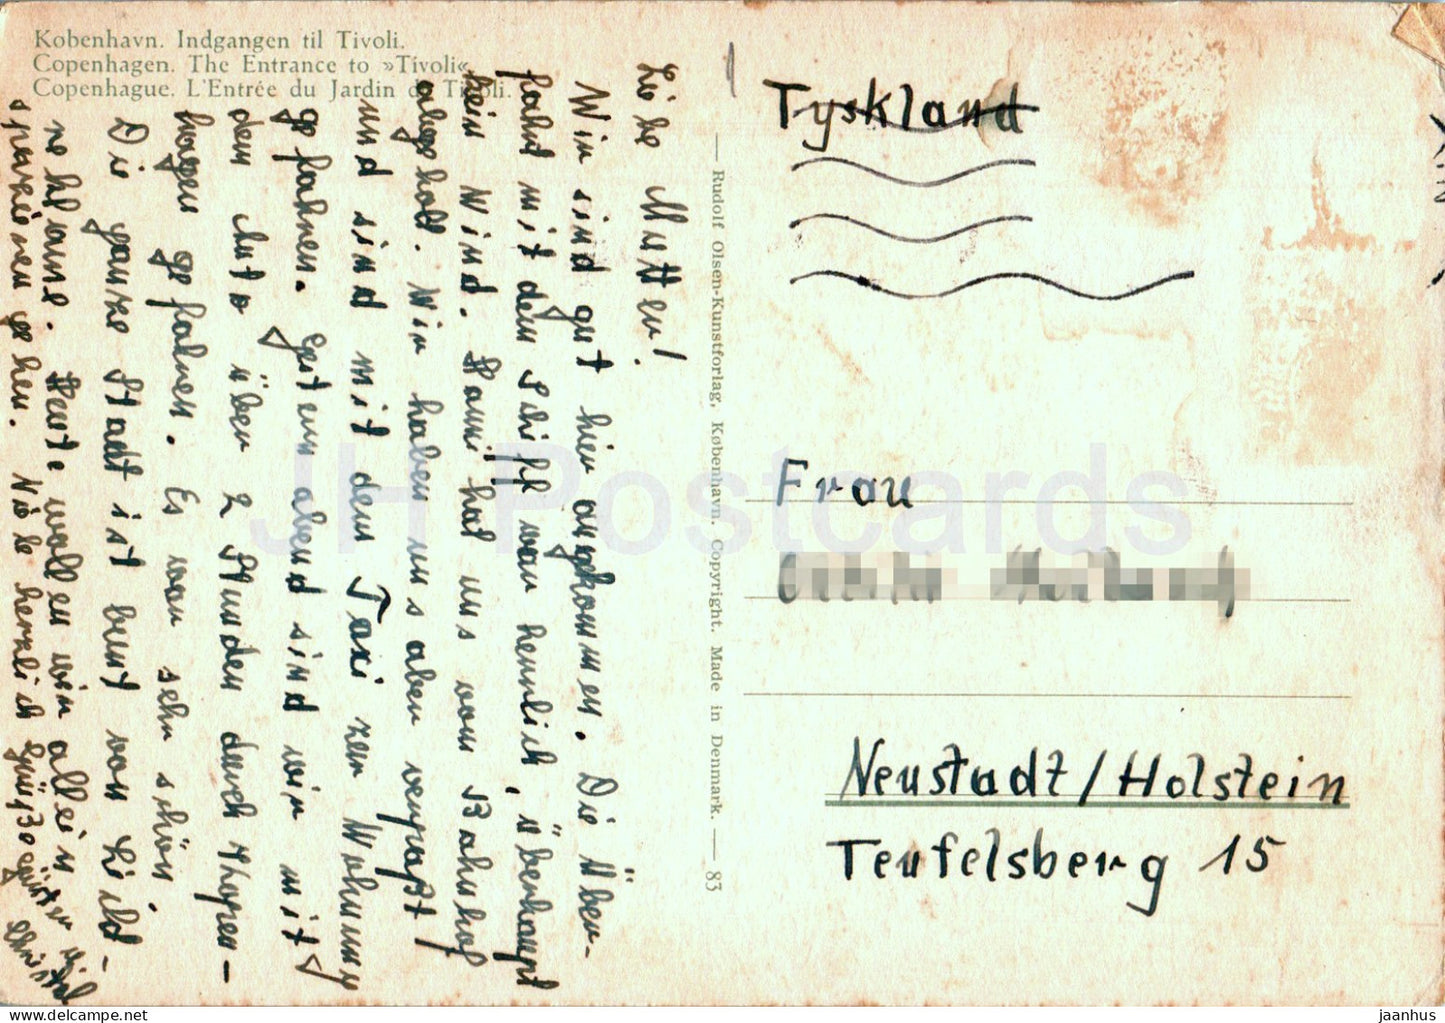 København. Indgangen til Tivoli.
Copenhagen. The Entrance to »Tivoli«
Copenhague. L'Entrée du Jardin de Tivoli.
Liebe Mutter!
Wir sind gut hier angekommen. Die Über-
fahrt mit dem Schiff war herrlich, überhaupt
kein Wind. Hanni hat uns vom Bahnhof
abgeholt. Wir haben uns aber verpaßt
und sind mit dem Taxi zur Wohnung
gefahren. Gestern abend sind wir mit
dem Auto über 2 Stunden durch Kopen-
hagen gefahren. Es war sehr schön.
Die ganze Stadt ist bunt von Licht-
reklame. Heute wollen wir allein
spazieren gehen. Viele herzliche Grüße
— Rudolf Olsen-Kunstforlag, København. Copyright. Made in Denmark. — 83
Tyskland
Frau
Neustadt/Holstein
Teufelsberg 15
JH Postcards
www.delcampe.net
jaanhus